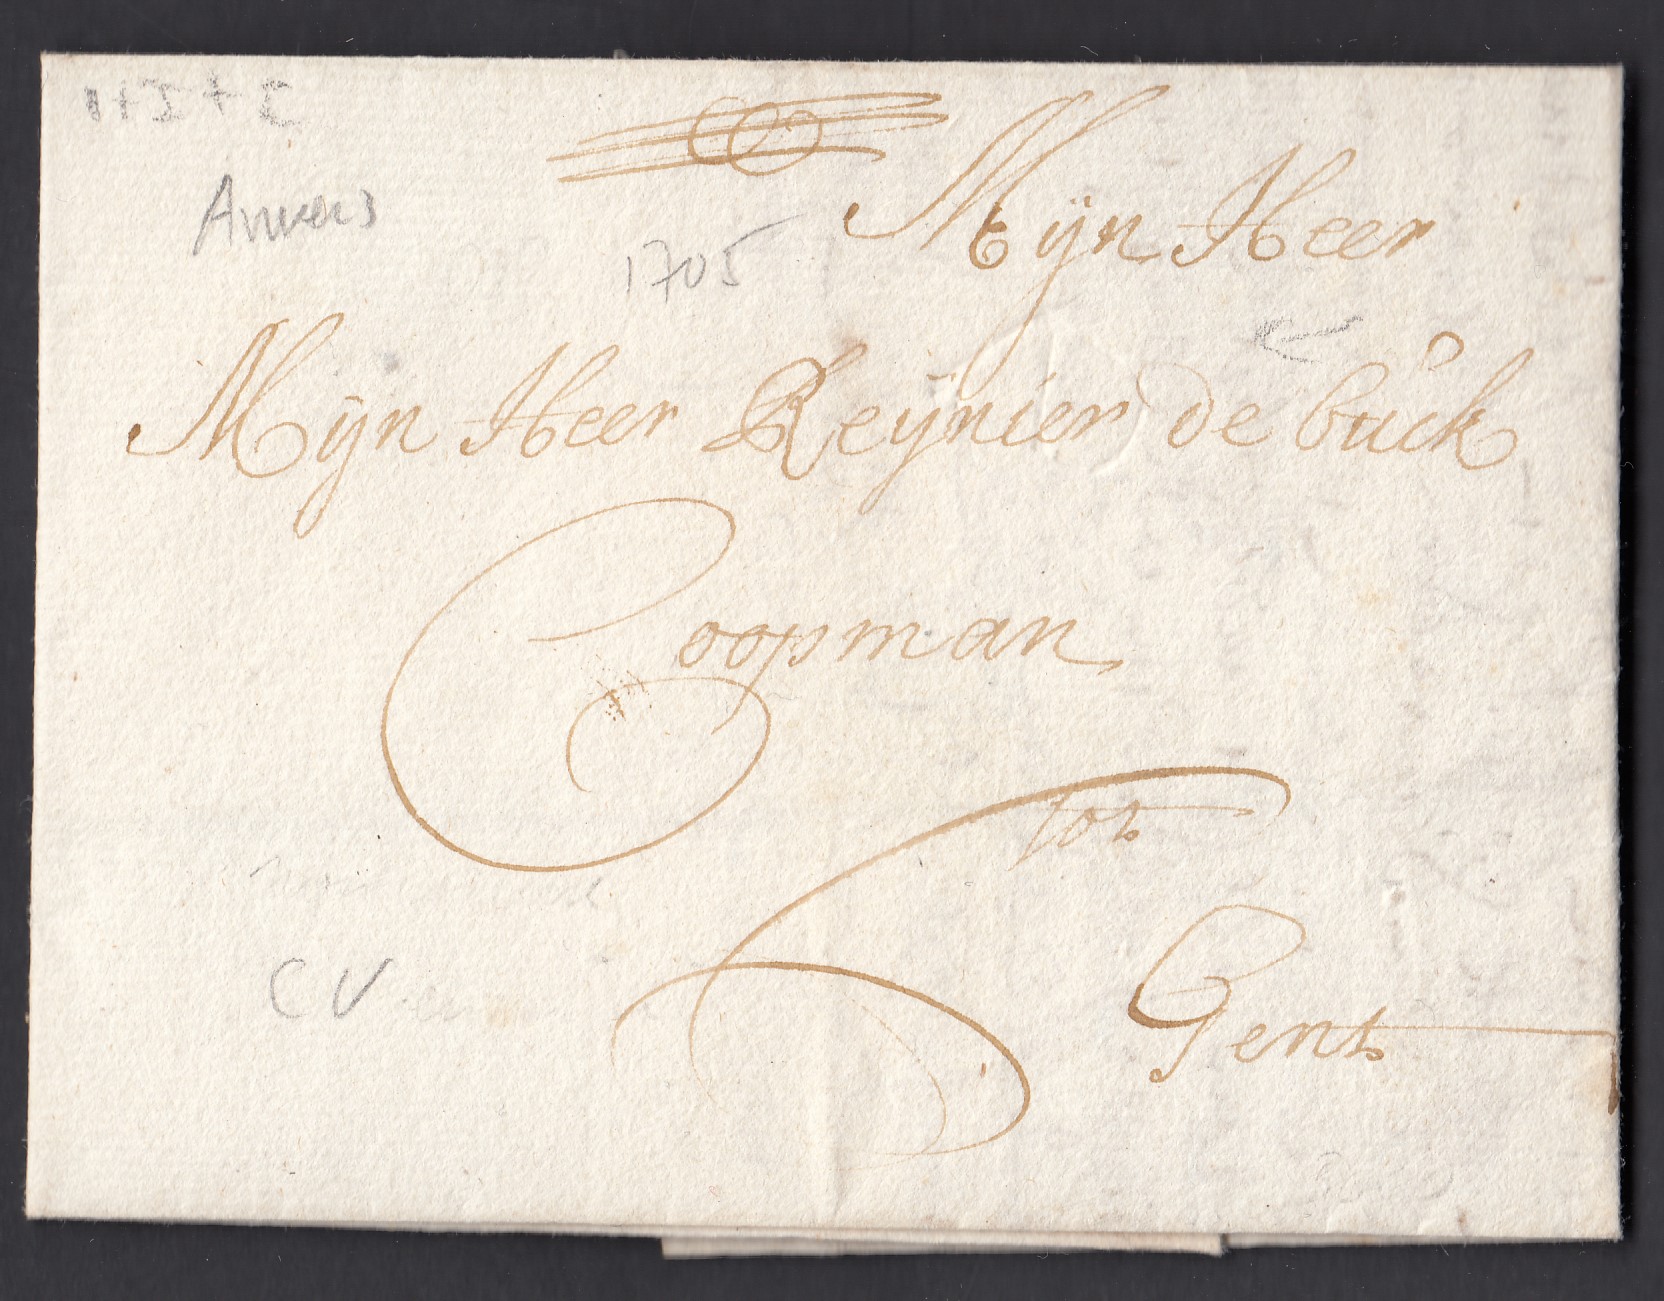 Anvers
1705
Mijn Heer
Mijn Heer Reijnier de bück
Coopman
tot
Gent
CV